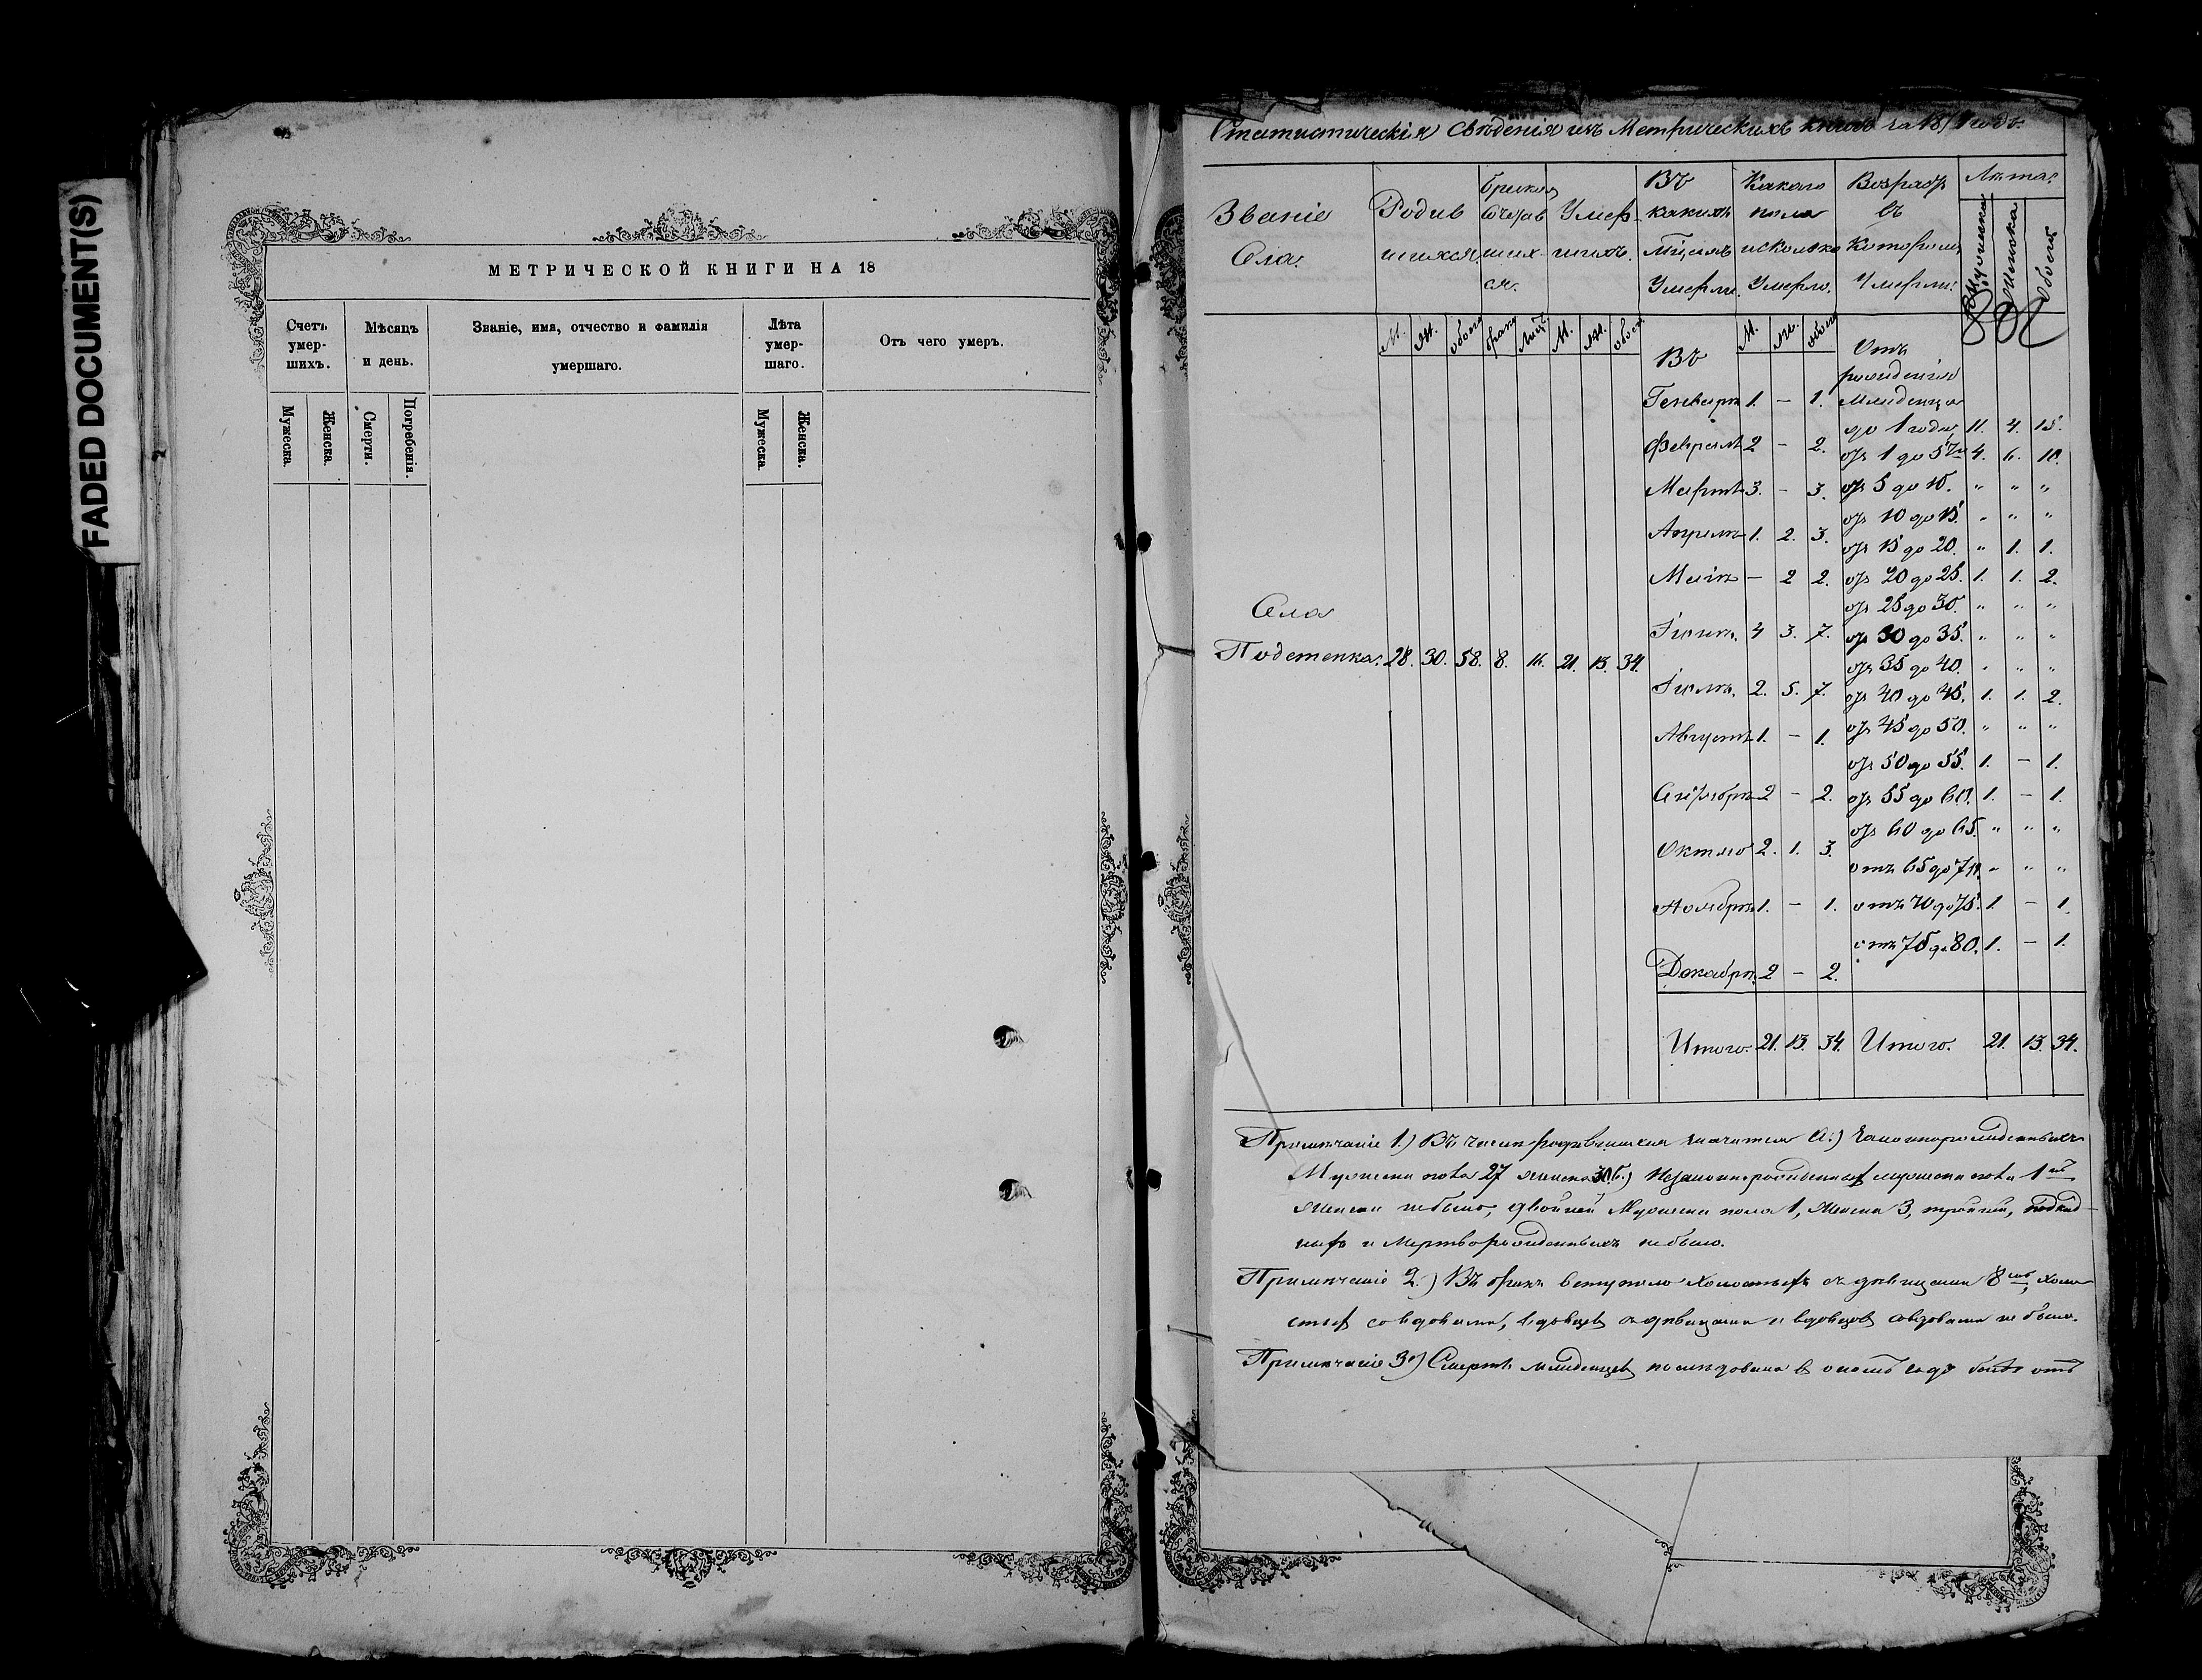 FADED DOCUMENT(S)
МЕТРИЧЕСКОЙ КНИГИ НА 18
Счетъ умер-шихъ.
Мѣсяцъ и день.
Званіе, имя, отчество и фамилія умершаго.
Лѣта умер-шаго.
Отъ чего умеръ.
Мужеска.
Женска.
Смерти.
Погребенія.
Мужеска.
Женска.
Статистическія свѣденія изъ Метрическихъ книгъ за 18
Званіе Села.
Родив шихся.
браком сочетав шихся.
Умер-шихъ.
Въ какихъ Мѣсяцъ Умерли.
Какого пола и сколько Умерло.
Возраст въ котором Умерли.
Лета.
Мужеска
Женска
обоего
М. Ж. обоего брак Лицъ М. Ж. обоего
Въ
М. Ж. обоего
Отъ рожденія Младенца
Генварѣ 1. – 1.
до 1 года 11. 4. 15.
Февралѣ 2 – 2.
от 1 до 5ти 4. 6. 10.
Мартѣ 3. – 3.
от 5 до 10. " " "
от 10 до 15. " " "
Апрелѣ 1. 2. 3.
от 15 до 20. " 1. 1.
Маіѣ – 2 2.
от 20 до 25. 1. 1. 2.
от 25 до 30. " " "
Іюнѣ. 4 3. 7.
от 30 до 35. " " "
Села
Подстепка. 28. 30. 58. 8. 16. 21. 13. 34.
от 35 до 40. " " "
Іюлѣ. 2. 5. 7.
от 40 до 45. 1. 1. 2.
Августѣ 1. – 1.
от 45 до 50. " " "
от 50 до 55. 1. – 1.
Сентябрѣ 2 – 2.
от 55 до 60. 1. – 1.
от 60 до 65. " " "
Октяб 2. 1. 3.
отъ 65 до 70. " " "
Ноябрѣ 1. – 1.
отъ 70 до 75. 1. – 1.
отъ 75 до 80. 1. – 1.
Декабрѣ. 2 – 2.
Итого. 21. 13. 34.
Итого. 21. 13. 34.
Примѣчаніе 1.) Въ числѣ родившихся значится А.) Законнорожденныхъ
Мужеска пола 27 женска 30 Б.) Незаконнорожденных мужеска пола 1
женска небыло, двойней Мужеска пола 1, Женска 3, тройни, подкид-
ных и Мертворожденныхъ небыло.
Примѣчаніе 2.) Въ бракъ вступило холостых съ дѣвицами 8, холо
стых со вдовами, вдовцев съ дѣвицами и вдовцов со вдовами не было.
Примѣчаніе 3е) Смерть младенцев последовала в году отъ